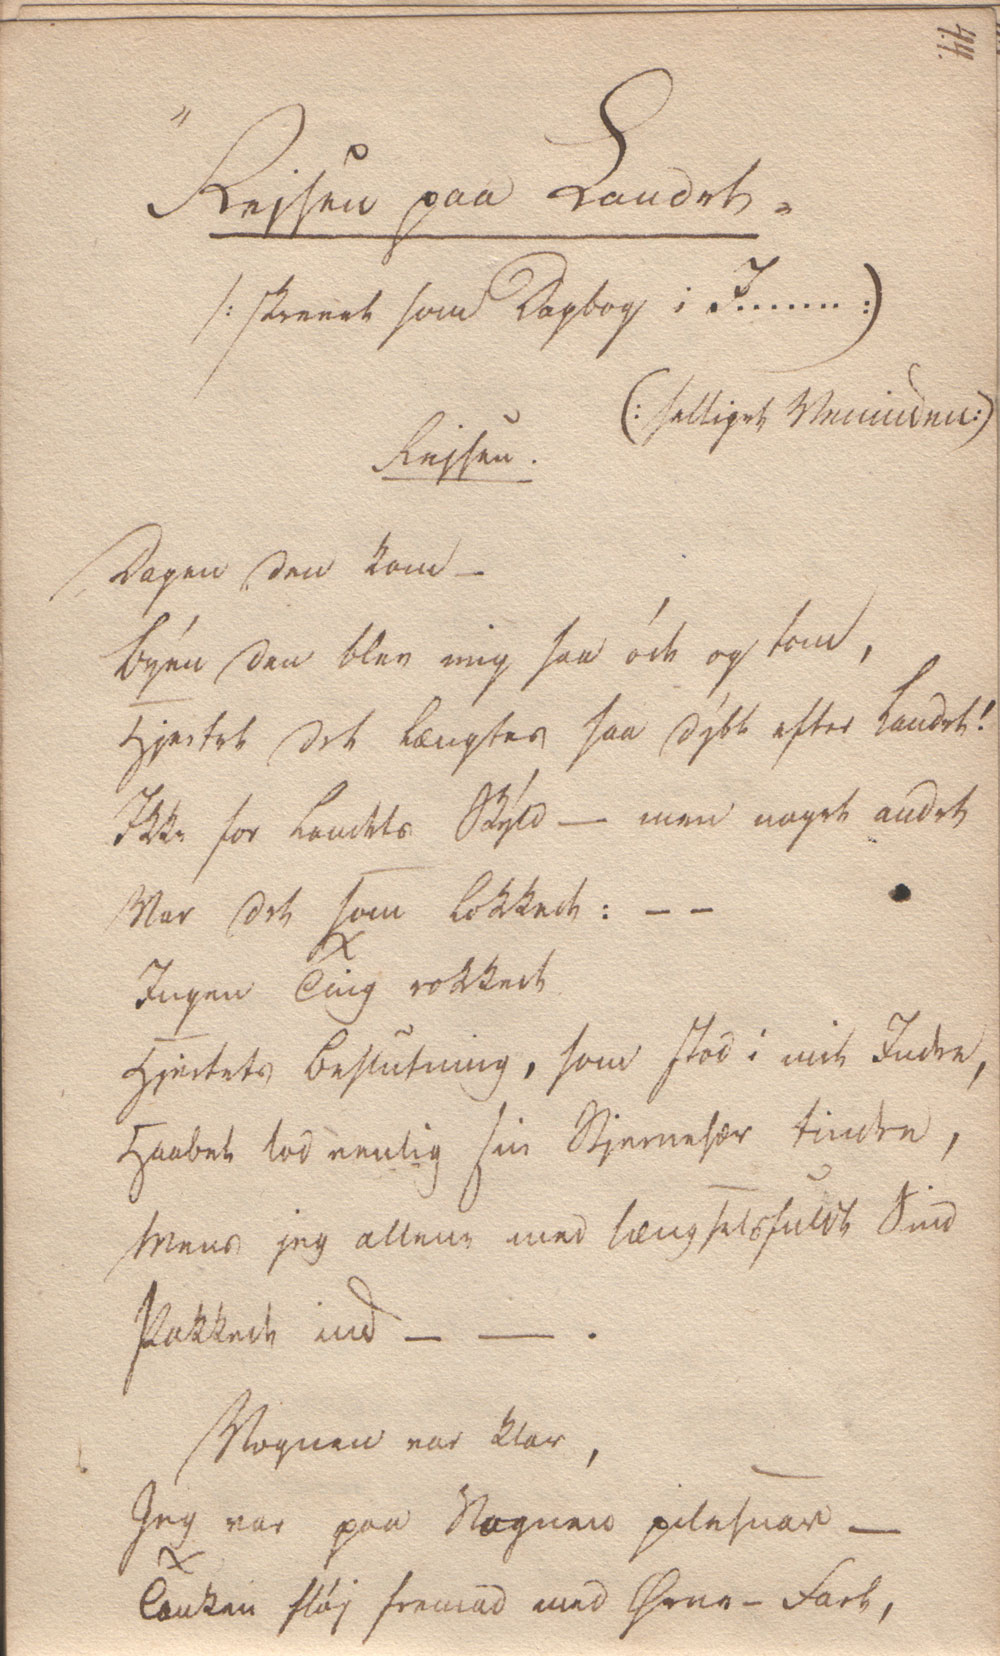 44.
"Rejsen paa Landet"
/: skrevet som Dagbog i J...... :)
(: helliget Veninden :)
Rejsen.
Dagen den kom —
Byen den blev mig saa öde og tom,
Hjertet det længtes saa dybt efter Landet!
Ikke for Landets Skyld — men noget andet
Var det som lokkede: — —
Ingen Ting rokkede
Hjertets Beslutning, som stod i mit Indre,
Haabet lod venlig sin Stjernehær tindre,
Mens jeg allene med længselsfuldt Sind
Pakkede ind — — .
Vognen var klar,
Jeg var paa Vognen pilesnar —
Tanken flöj fremad med Ørne-Fart,